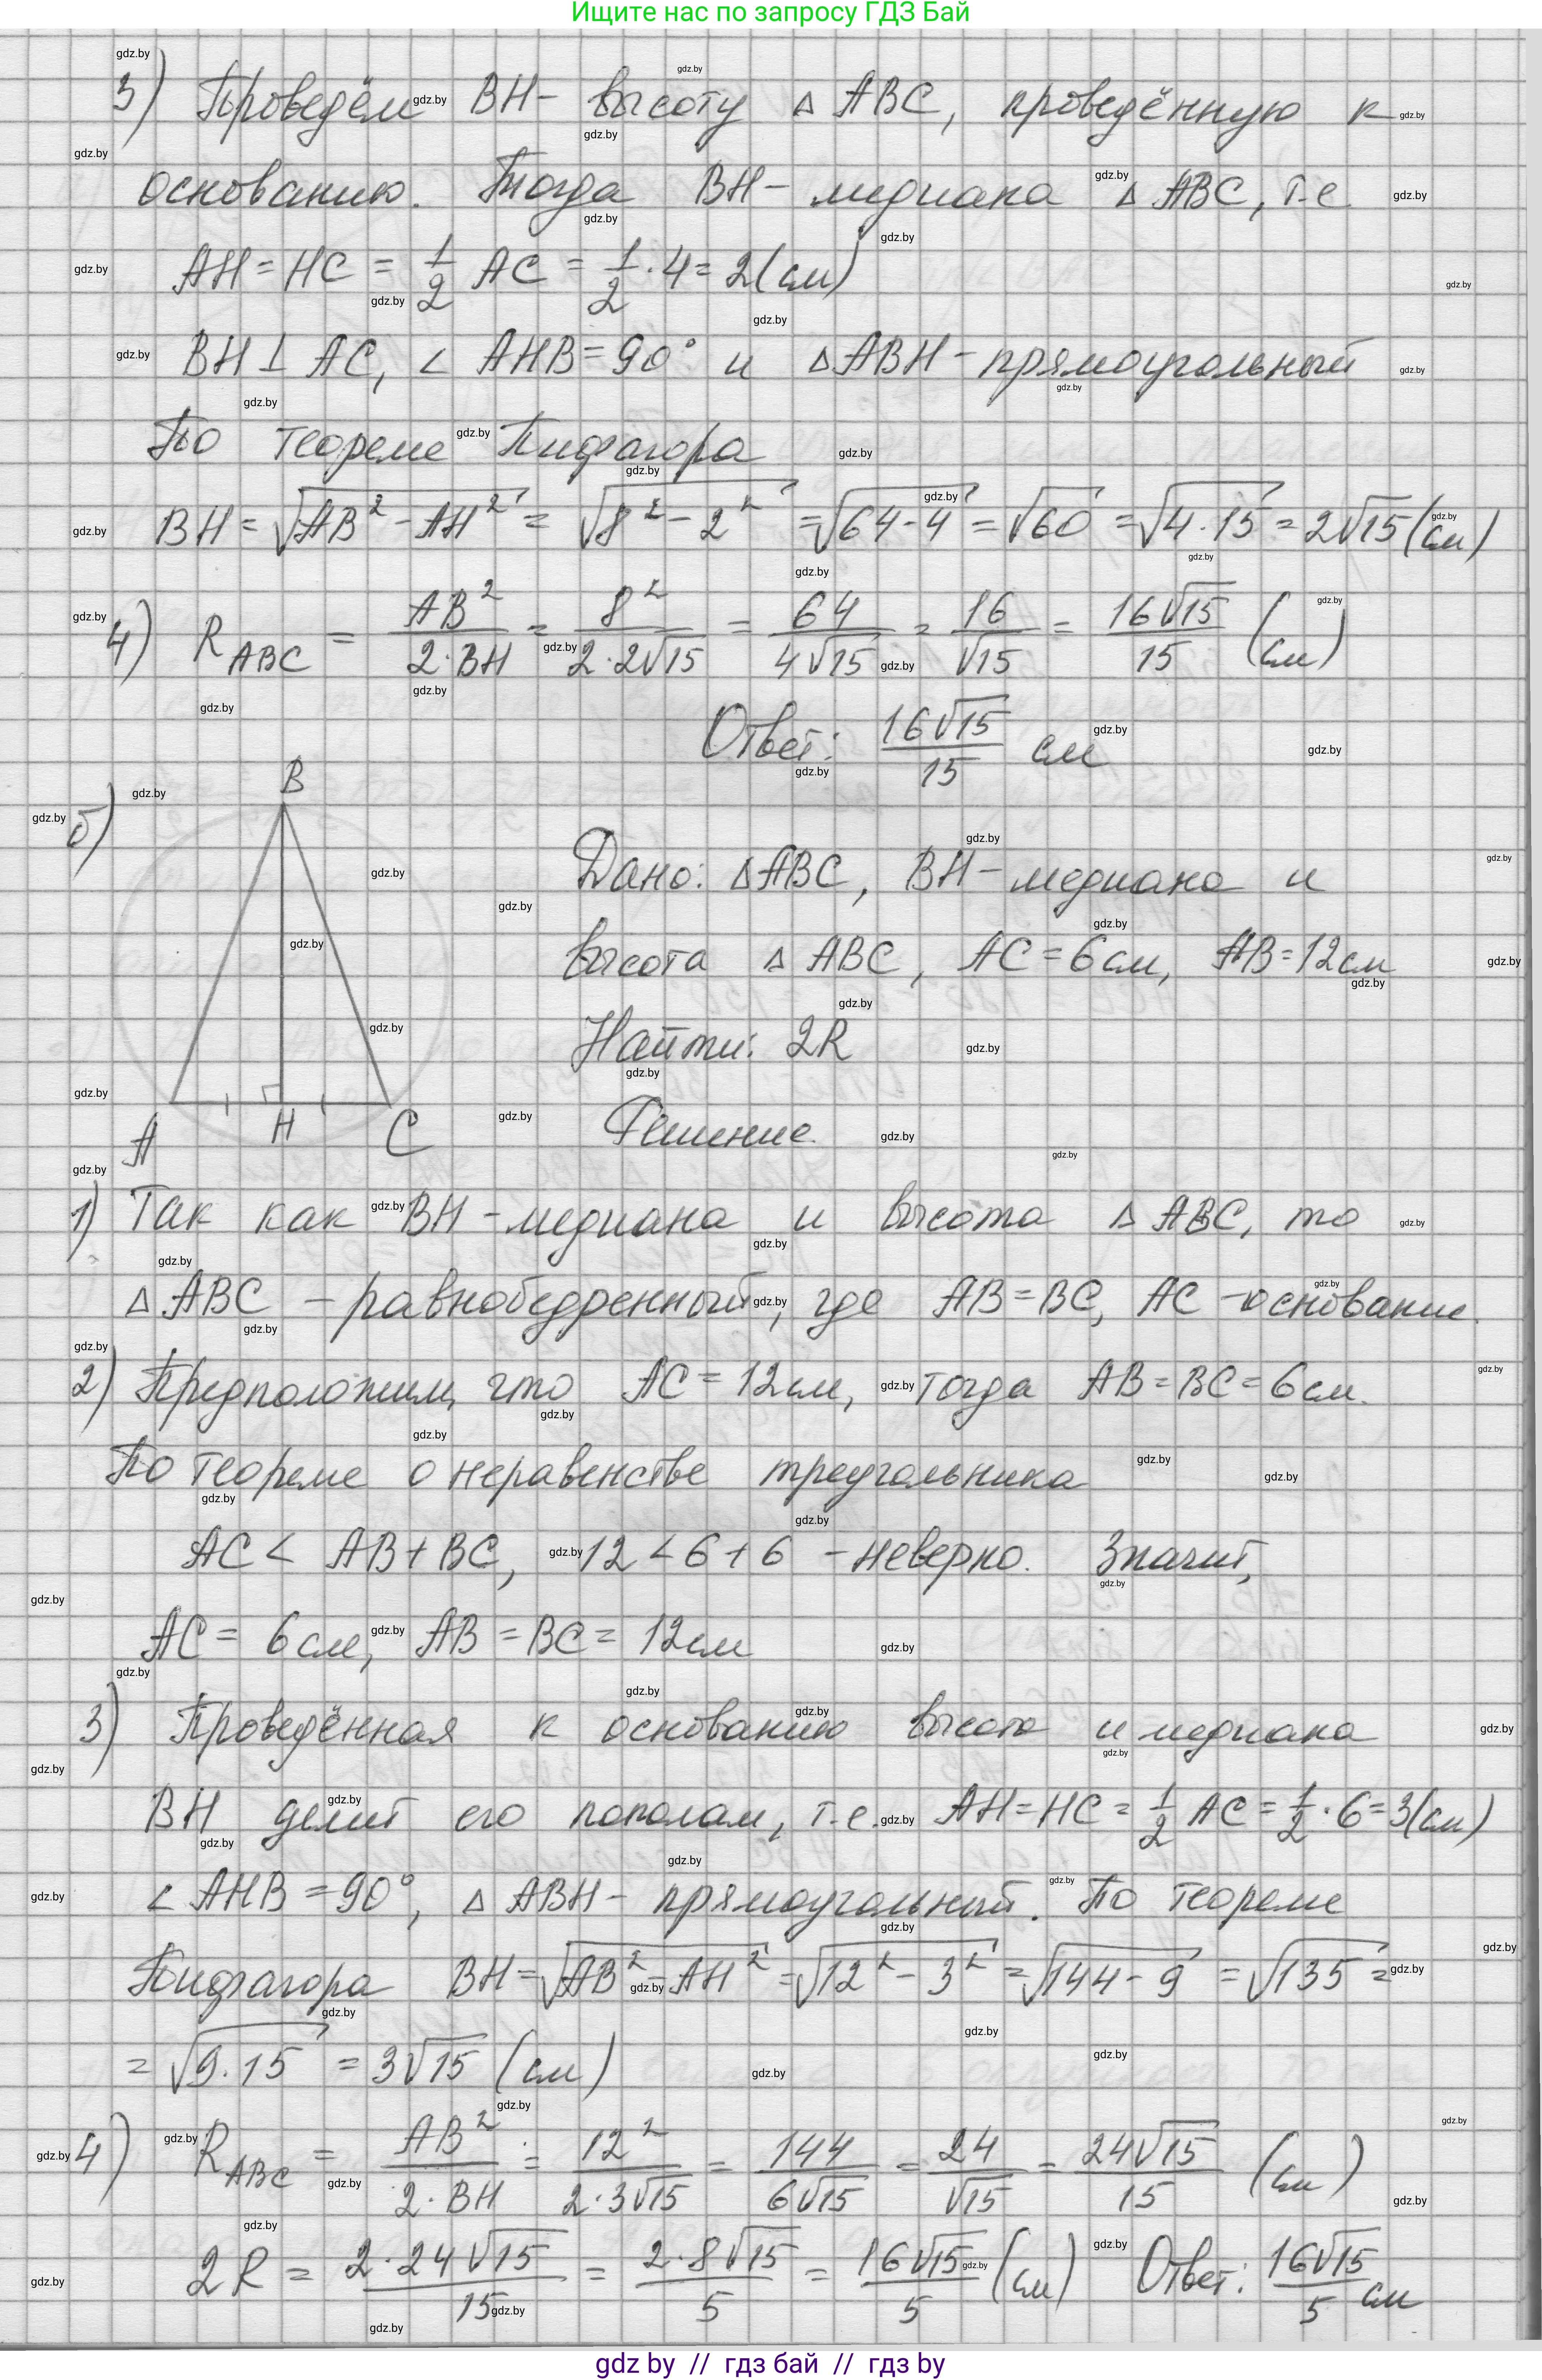 Ищите нас по запросу ГДЗ Бай
3) Проведём BH - высоту △ ABC, проведённую к
основанию. Тогда BH - медиана △ ABC, т.е
AH = HC = 1/2 AC = 1/2 · 4 = 2 (см)
BH ⊥ AC, ∠ AHB = 90° и △ABH - прямоугольный
По теореме Пифагора
BH = √(AB² - AH²) = √(8² - 2²) = √(64 - 4) = √60 = √(4 · 15) = 2√15 (см)
4) R ABC = AB²/(2 · BH) = 8²/(2 · 2√15) = 64/(4√15) = 16/√15 = 16√15/15 (см)
Ответ: 16√15/15 см
б)
B
A H C
Дано: △ABC, BH - медиана и
высота △ ABC, AC = 6 см, AB = 12 см
Найти: 2R
Решение.
1) Так как BH - медиана и высота △ ABC, то
△ ABC - равнобедренный, где AB = BC, AC - основание.
2) Предположим, что AC = 12 см, тогда AB = BC = 6 см.
По теореме о неравенстве треугольника
AC < AB + BC, 12 < 6 + 6 - неверно. Значит,
AC = 6 см, AB = BC = 12 см
3) Проведённая к основанию высота и медиана
BH делит его пополам, т.е. AH = HC = 1/2 AC = 1/2 · 6 = 3 (см)
∠ AHB = 90°, △ ABH - прямоугольный. По теореме
Пифагора BH = √(AB² - AH²) = √(12² - 3²) = √(144 - 9) = √135 =
= √(9 · 15) = 3√15 (см)
4) R ABC = AB²/(2 · BH) = 12²/(2 · 3√15) = 144/(6√15) = 24/√15 = 24√15/15 (см)
2R = 2 · 24√15/15 = 2 · 8√15/5 = 16√15/5 (см) Ответ: 16√15/5 см
gdz by // гдз бай // гдз by